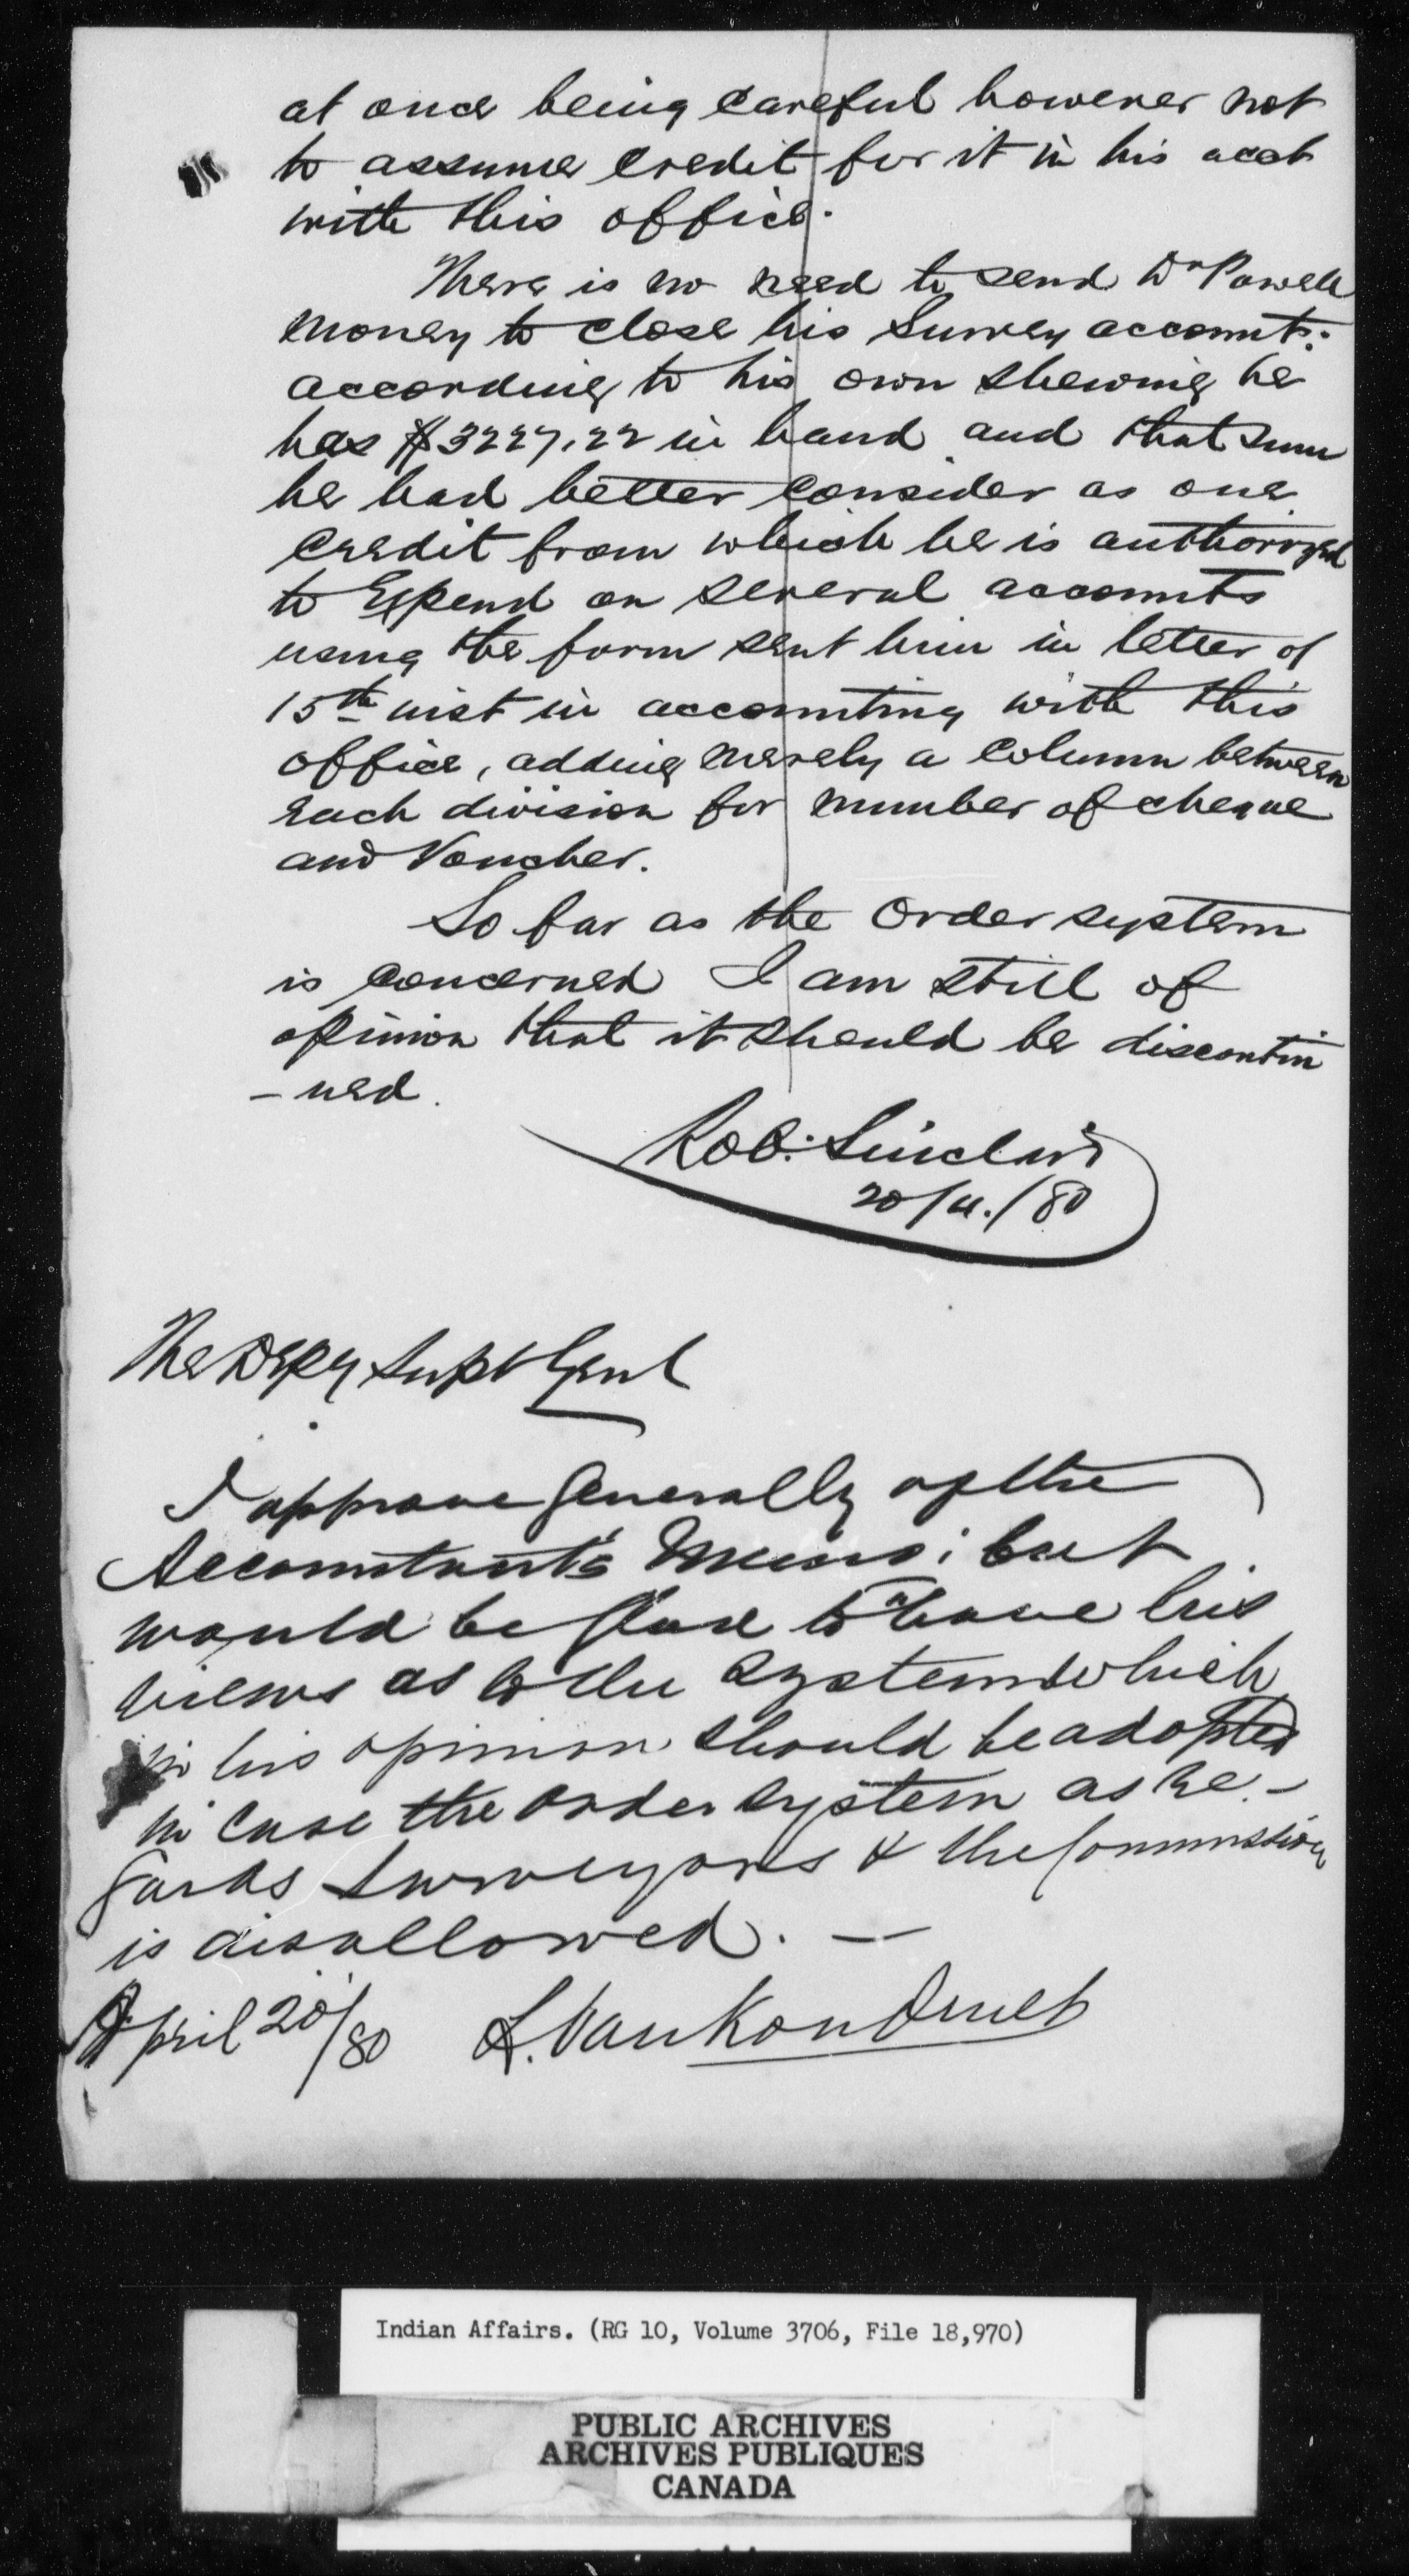 at once being careful however not
to assume credit for it in his acct
with this office.
There is no need to send Dr Powell
money to close his Survey account:
according to his own shewing he
has $3227.22 in hand and that sum
he had better consider as one
credit from which he is authorized
to expend on several accounts
using the form sent him in letter of
15th inst in accounting with this
office, adding merely a column between
each division for number of cheque
and Voucher.
So far as the Order system
is concerned I am still of
opinion that it should be discontin
- ued.
Rob. Sinclair
20/4./80
The Depy Supt Genl
I approve generally of the
Accountant's Memo; but
would be glad to have his
views as to the system which
in his opinion should be adopted
in case the order system as re-
gards Surveyors & the Commission
is disallowed. —
April 20/80 L. VanKoughnet
Indian Affairs. (RG 10, Volume 3706, File 18,970)
PUBLIC ARCHIVES
ARCHIVES PUBLIQUES
CANADA